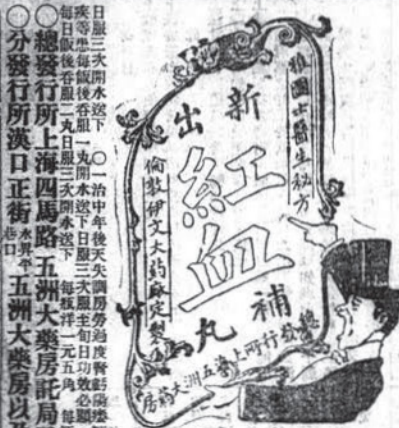 雅國士醫生秘方
新出
紅血
補丸
倫敦伊文大藥廠定製
總發行所上海五洲大药房
日服三次開水送下　○一治中年後天失調房勞過度腎虧陽痿
疾等患每飯後吞服一丸開水送下日服三次服至旬日功效必顯
每日飯後吞服二丸日服三次開水送下　每瓶洋一元五角　每
○總發行所上海四馬路五洲大藥房託局
○分發行所漢口正街永昇平巷口五洲大藥房以及